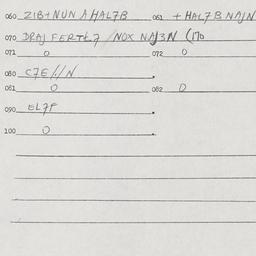 060 ZIB+NUN A HAL7B 061 + HAL7B NAJN
070 DRAJ FERTŁ7 / NOX NAJ3N (170
071 0 072 0
080 C7E /./N
081 0 082 0
090 EL7P
100 0